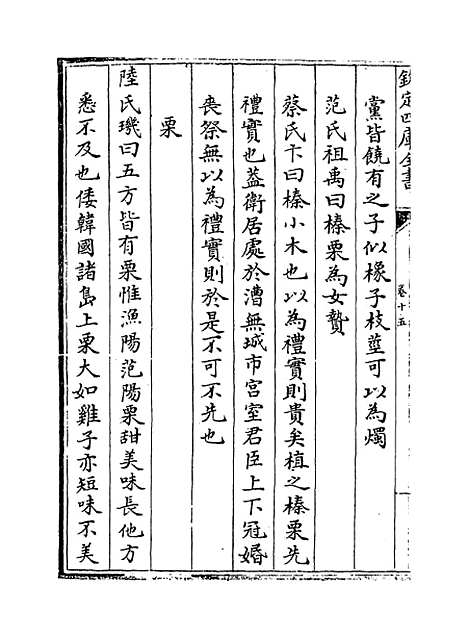 欽定四庫全書
卷十五
黨皆饒有之子似橡子枝莖可以為燭
范氏祖禹曰榛栗為女贄
蔡氏卞曰榛小木也以為禮實則貴矣植之榛栗先
禮實也葢衛居處於漕無城市宫室君臣上下冠婚
喪祭無以為禮實則於是不可不先也
栗
陸氏璣曰五方皆有栗惟漁陽范陽栗甜美味長他方
悉不及也倭韓國諸島上栗大如雞子亦短味不美